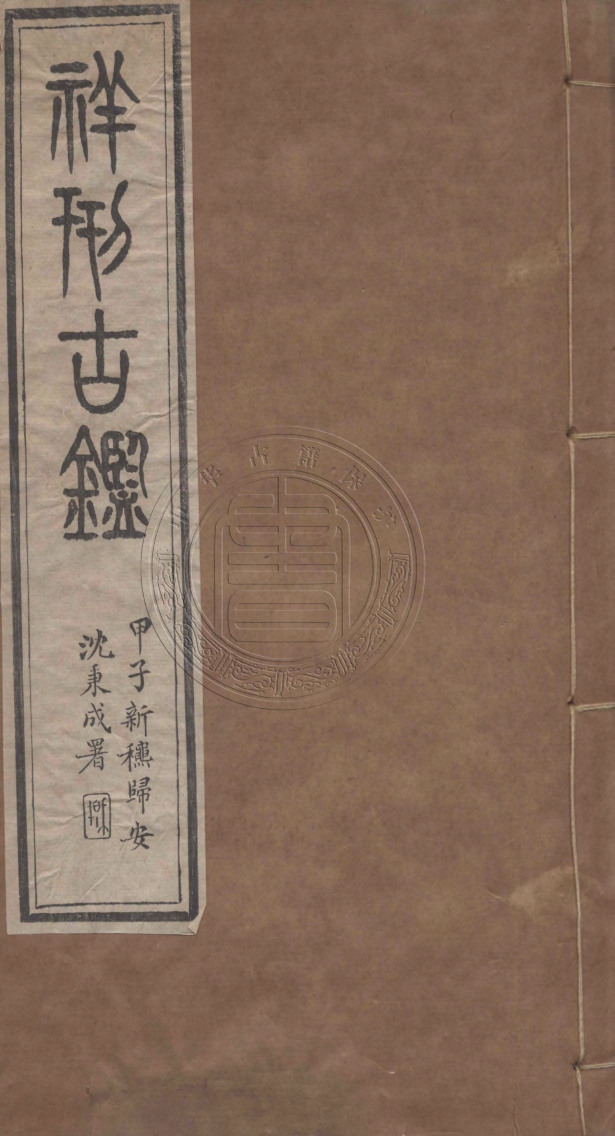 祥刑古鑑
甲子新穐歸安
沈秉成署